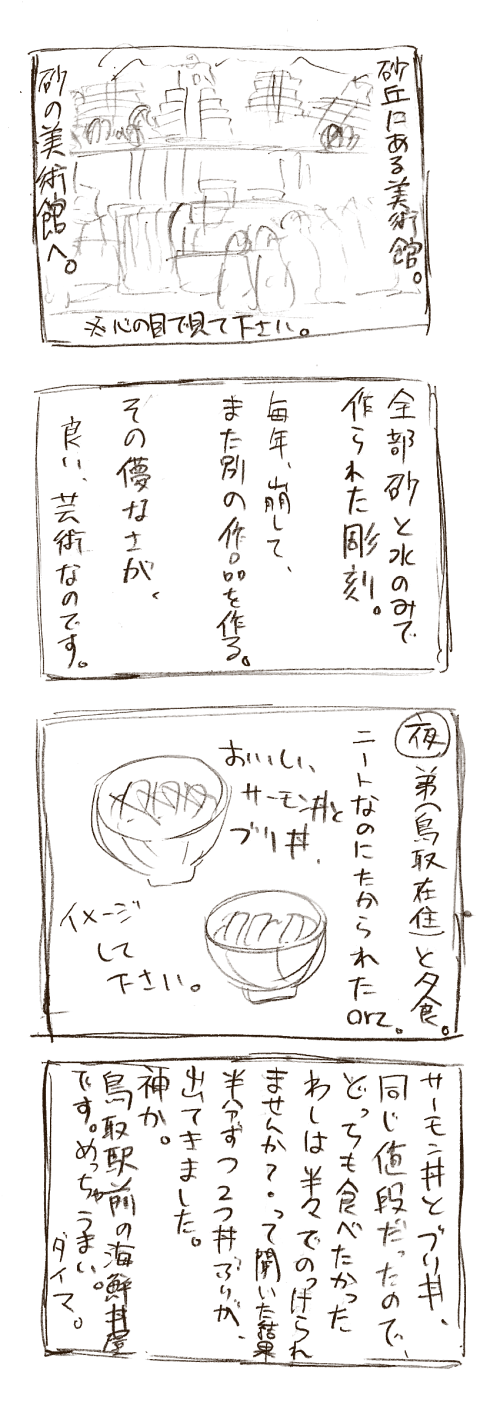 砂丘にある美術館。
砂の美術館へ。
※心の目で見て下さい。
全部砂と水のみで
作られた彫刻。
毎年、崩して、
また別の作品を作る。
その儚なさが、
良い、芸術なのです。
夜
弟(鳥取在住)と夕食。
ニートなのにたかられたorz。
おいしい
サーモン丼と
ブリ丼。
イメージ
して
下さい。
サーモン丼とブリ丼、
同じ値段だったので、
どっちも食べたかった
わしは半々でのっけられ
ませんか?・って聞いた結果
半分ずつ2つ丼ぶりが、
出てきました。
神か。
鳥取駅前の海鮮丼屋
です。めっちゃうまい。
ダイマ。